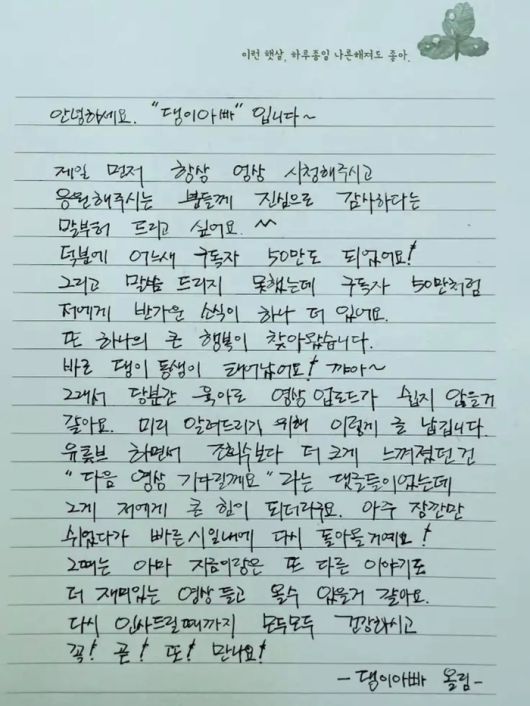 이런 햇살, 하루종일 나른해져도 좋아.
안녕하세요. "댕이아빠" 입니다~
제일 먼저 항상 영상 시청해주시고
응원해주시는 분들께 진심으로 감사하다는
말부터 드리고 싶어요. ^^
덕분에 어느새 구독자 50만도 되었어요!
그리고 말씀 드리지 못했는데 구독자 50만처럼
저에게 반가운 소식이 하나 더 있어요.
또 하나의 큰 행복이 찾아왔습니다.
바로 댕이 동생이 태어났어요! 꺄아~
그래서 당분간 육아로 영상 업로드가 쉽지 않을거
같아요. 미리 알려드리기 위해 이렇게 글 남깁니다.
유튜브 하면서 조회수보다 더 크게 느껴졌던 건
"다음 영상 기다릴께요" 라는 댓글들이었는데
그게 저에게 큰 힘이 되더라구요. 아주 잠깐만
쉬었다가 빠른시일내에 다시 돌아올거예요!
그때는 아마 지금이랑은 또 다른 이야기로
더 재미있는 영상 들고 올수 있을거 같아요.
다시 인사드릴때까지 모두모두 건강하시고
꼭! 곧! 또! 만나요!
- 댕이아빠 올림-